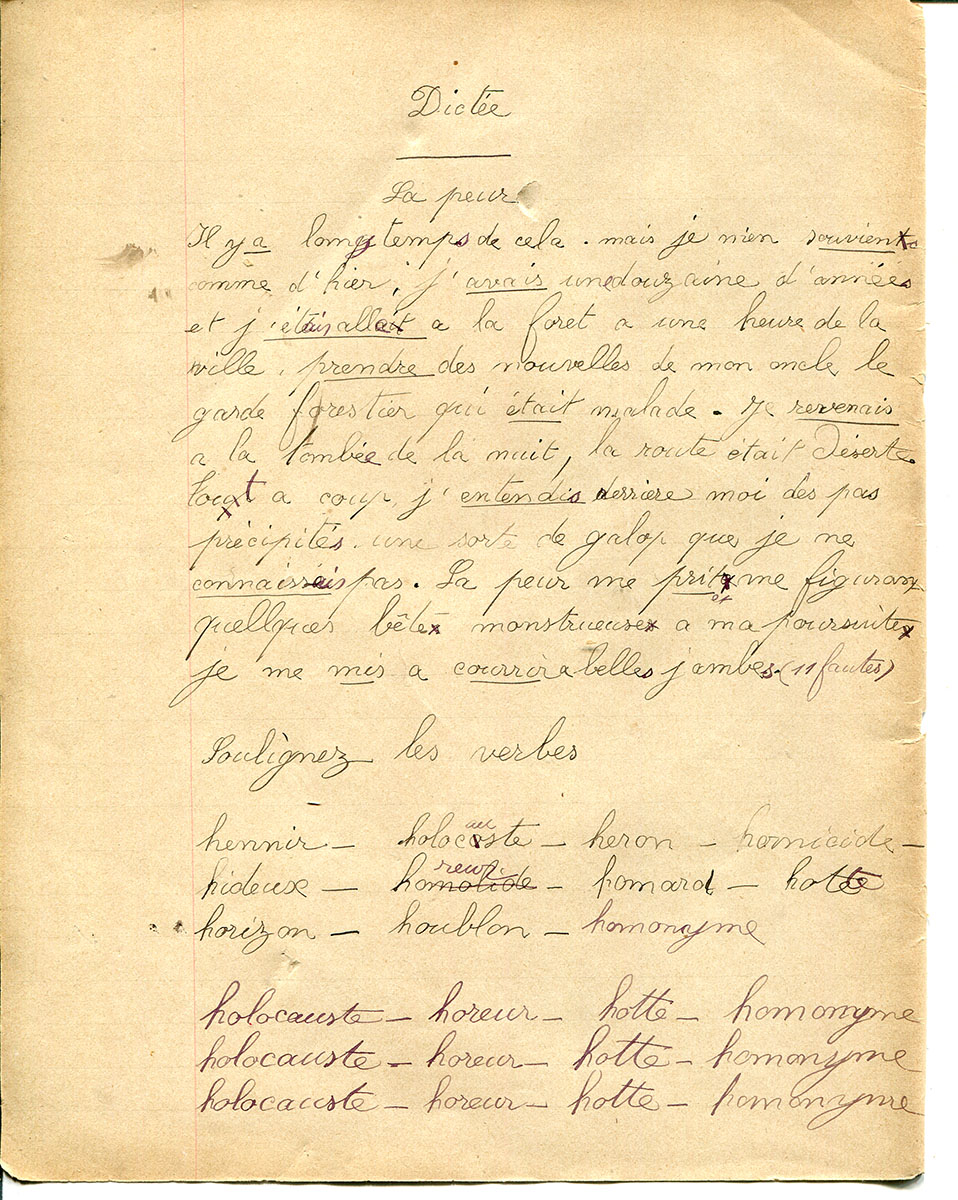 Dictée
La peur
Il y a longtemps de cela. mais je m'en souviens
comme d'hier, j'avais une douzaine d'années
et j'étais allait a la foret a une heure de la
ville, prendre des nouvelles de mon oncle le
garde forestier qui était malade. Je revenais
a la tombée de la nuit, la route était déserte
Tout a coup, j'entendis derrière moi des pas
précipités une sorte de galop que je ne
connaissais pas. La peur me prit me figurant
quellques bêtes monstrueuses a ma poursuite
je me mis a courrir a belles jambes. (11 fautes)
Soulignez les verbes
hennir – holocauste – heron – homicide –
hideuse – horeur – homard – hotte
horizon – houblon – homonyme
holocauste – horeur – hotte – homonyme
holocauste – horeur – hotte – homonyme
holocauste – horeur – hotte – homonyme